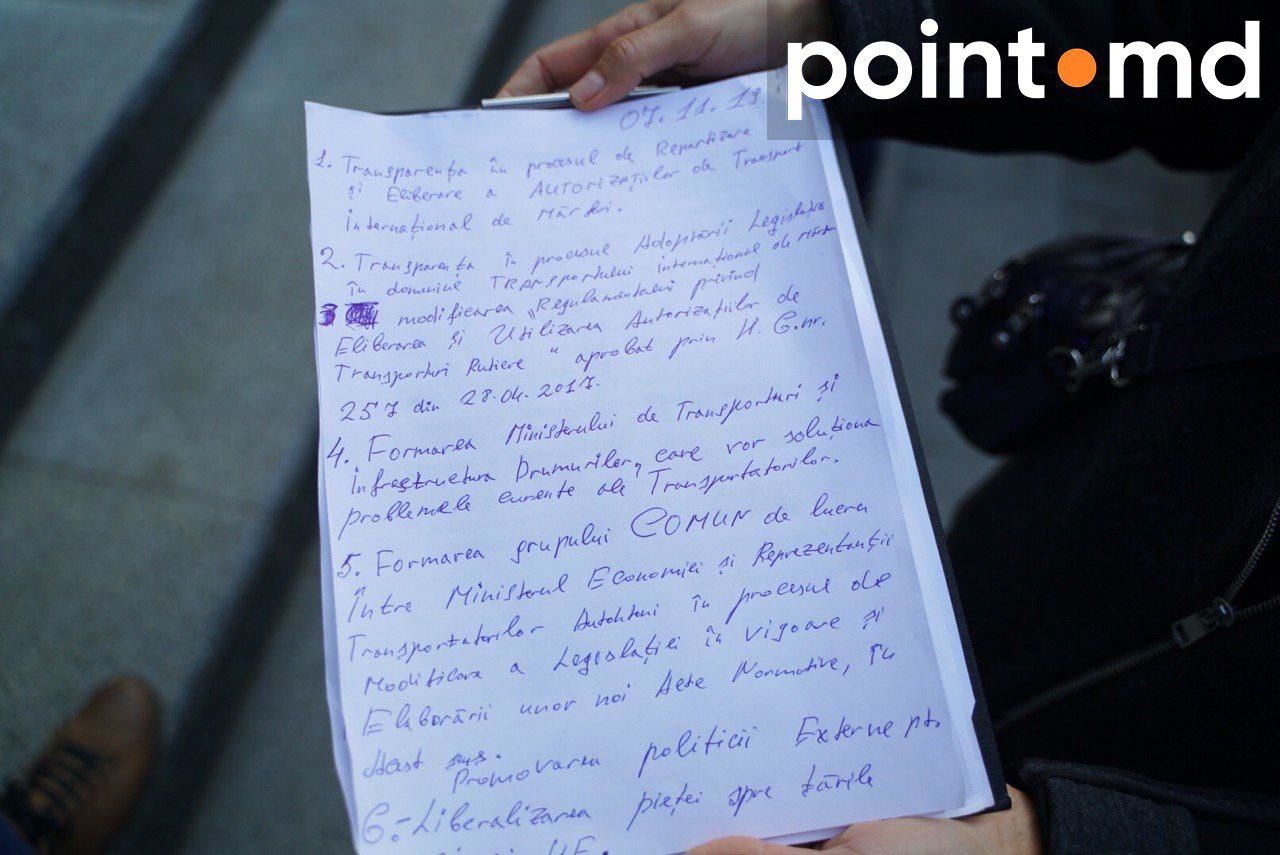 point.md
07.11.19.
1. Transparența în procesul de Repartizare
și Eliberare a AUTORIZAȚIILOR de Transport
Internațional de Mărfuri.
2. Transparența în procesul Adoptării Legislația
în domeniul TRANSPORTULUI internațional de Mărfuri
3 modificarea „Regulamentului privind
Eliberarea și Utilizarea Autorizațiilor de
Transporturi Rutiere" aprobat prin H.G.nr.
257 din 28.04.2017.
4. Formarea Ministerului de Transporturi și
Infrastructura Drumurilor, care vor soluționa
problemele curente ale Transportatorilor.
5. Formarea grupului COMUN de lucru
Între Ministerul Economiei și Reprezentanții
Transportatorilor Autohtoni în procesul de
Modificare a Legislației în vigoare și
Elaborării unor noi Acte Normative, în
Acest sens.
Promovarea politicii Externe pt.
6.-Liberalizarea pieței spre țările
UE.